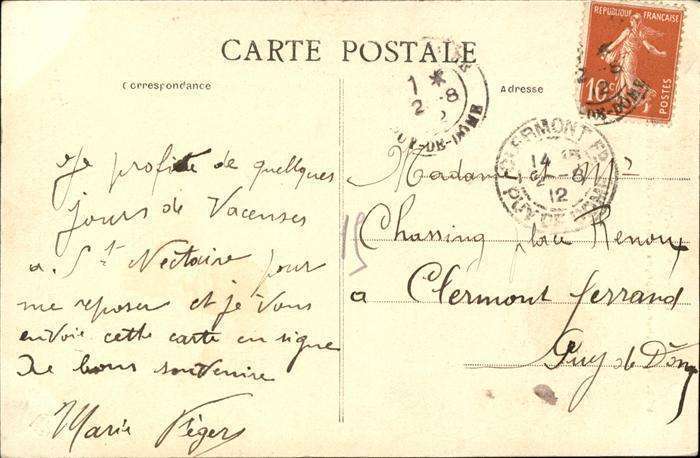 CARTE POSTALE
Correspondance
Je profite de quelques
jours de Vacenses
a St Nectaire pour
me reposer et je Vous
envoie cette carte en signe
de bons souvenire
Marie
Adresse
REPUBLIQUE FRANÇAISE
10c
POSTES
1 *
2 -8
PUY-DE-DOME
CLERMONT-FD
14
2 -8
12
PUY-DE-DOME
Madame et Mr
Chassing place Renoux
a Clermont ferrand
Puy de Dôme